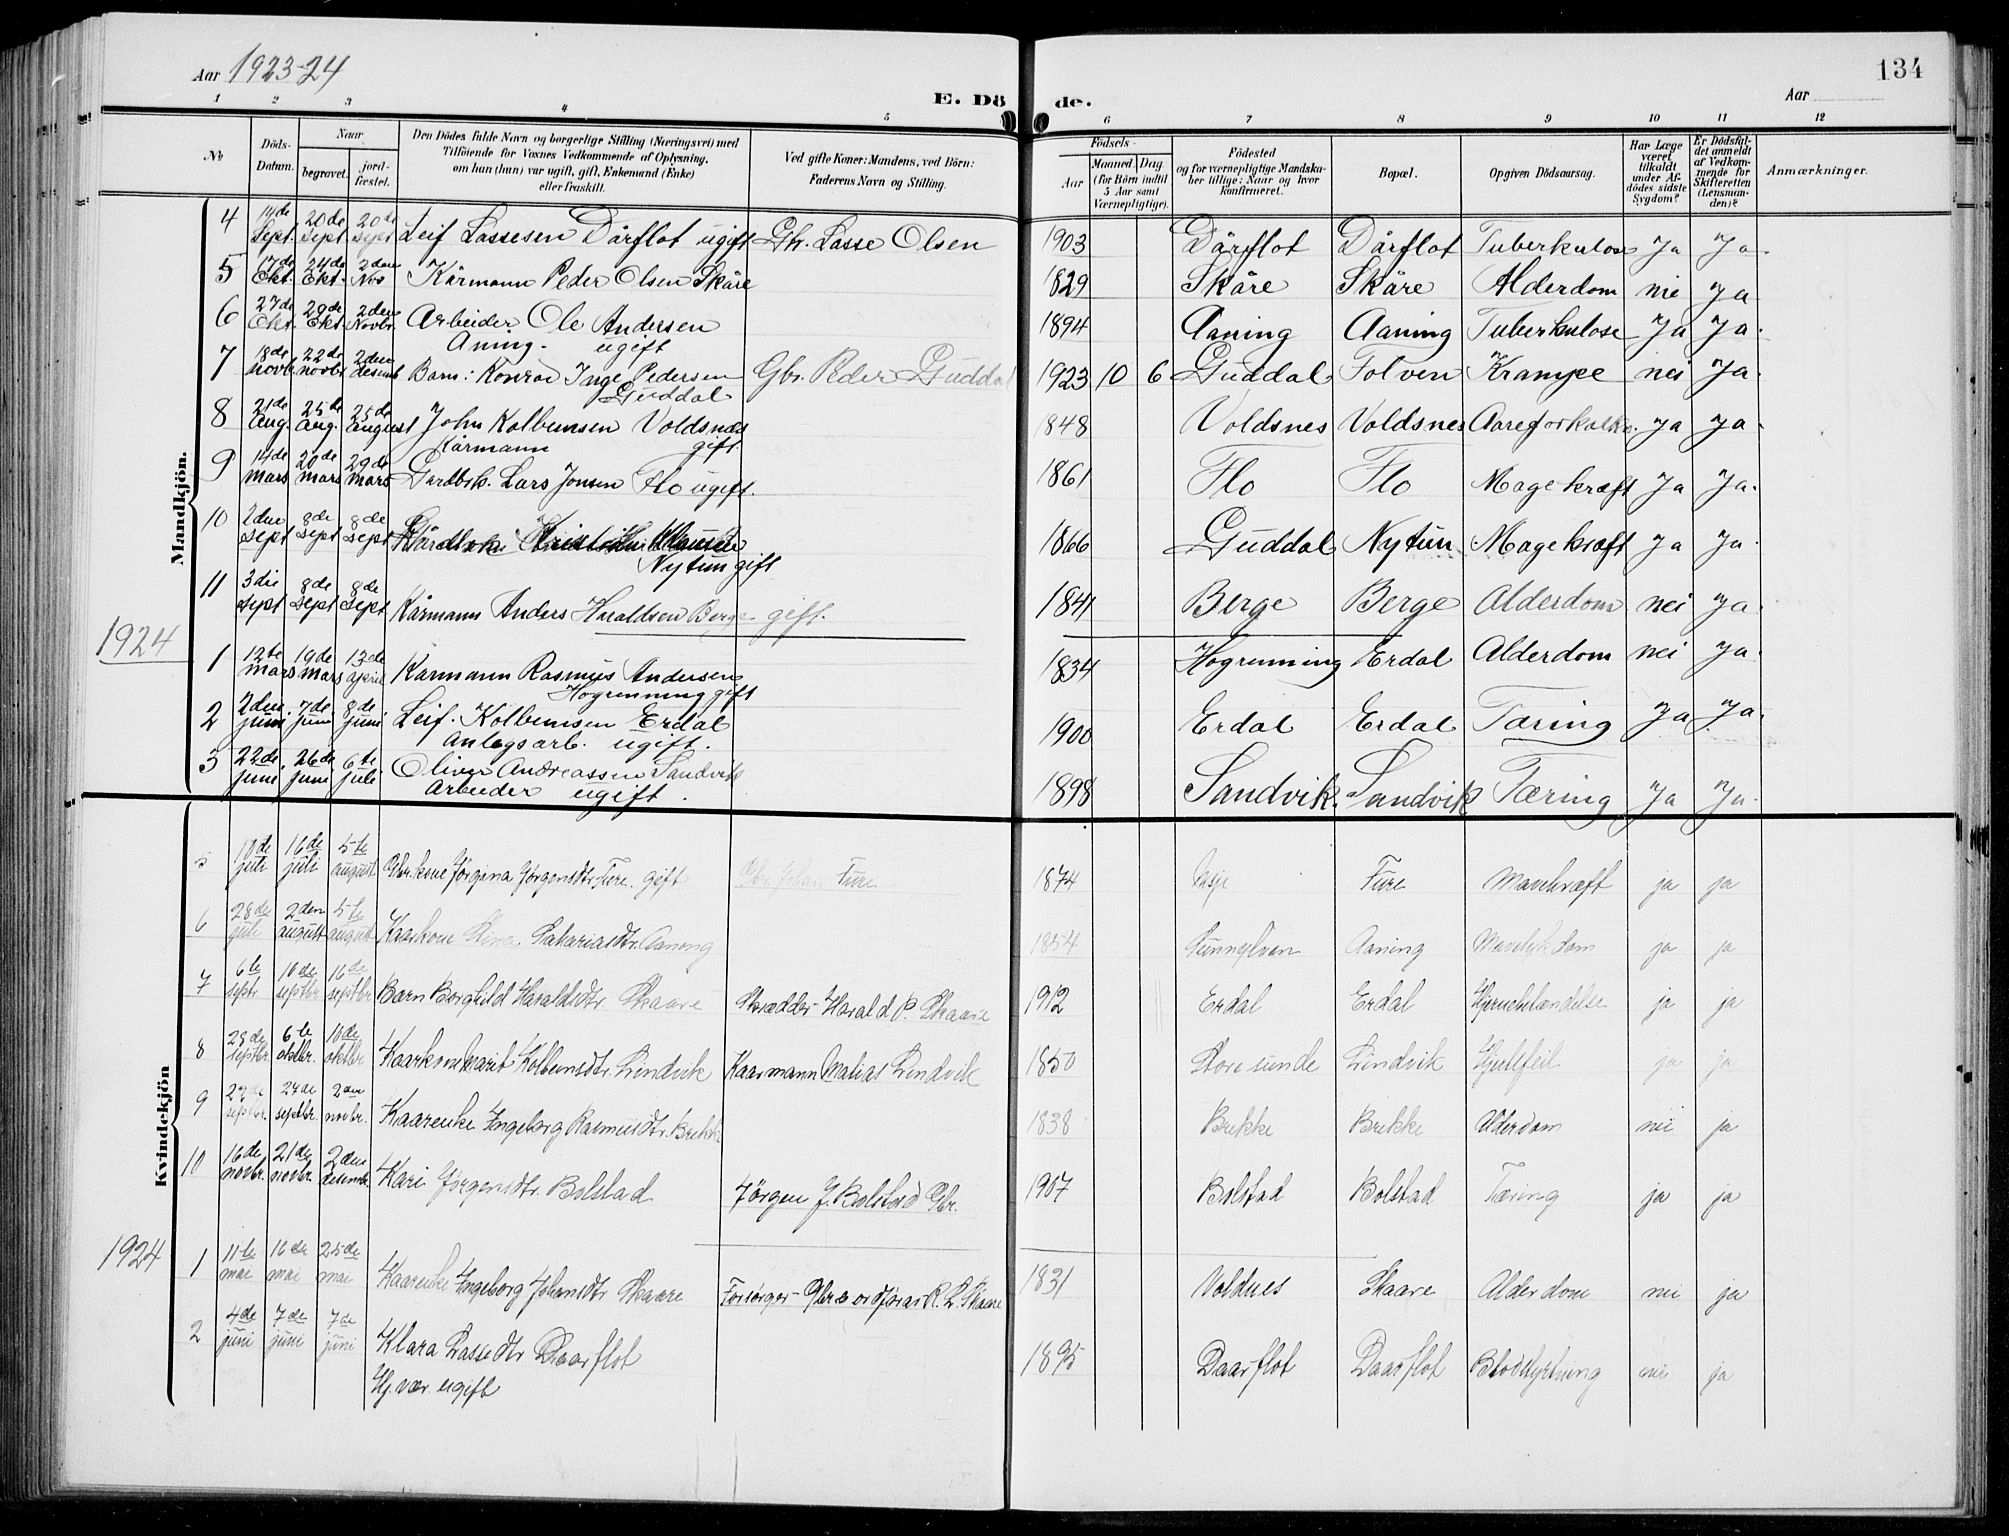 134
Aar 1923-24
Aar
E. Dö de.
1 2 3 4 5 6 7 8 9 10 11 12
No
Döds-Datum.
Naar
begravet.
jord-fæstet.
Den Dödes fulde Navn og borgerlige Stilling (Næringsvei) med
Tilföiende for Voxnes Vedkommende af Oplysning,
om han (hun) var ugift, gift, Enkemand (Enke)
eller fraskilt.
Ved gifte Koner: Mandens, ved Börn:
Faderens Navn og Stilling.
Födsels-
Aar
Maaned Dag
(for Börn indtil
5 Aar samt
Værnepligtige).
Födested
og for værnepligtige Mandska-
ber tillige: Naar og hvor
konfirmeret.
Bopæl.
Opgiven Dödsaarsag.
Har Læge
været
tilkaldt
under Af-
dödes sidste
Sygdom?
Er Dödsfal-
det anmeldt
af Vedkom-
mende for
Skifteretten
(Lensman-
den)?
Anmærkninger.
Mandkjön.
4 14de Sept. 20de Sept 20de Sept Leif Lassesen Dårflot ugift Gbr. Lasse Olsen 1903 Dårflot Dårflot Tuberkulose Ja Ja.
5 17de Okt. 24de Okt. 2den Nov Kårmann Peder Olsen Skåre 1829 Skåre Skåre Alderdom nei Ja
6 27de Okt. 29de Okt 2den Novbr. Arbeider Ole Andersen 1894 Aaning Aaning Tuberkulose Ja Ja.
Aning. ugift
7 18de novbr. 22de novbr 2den desemb Barn: Konrad Inge Pedersen Gbr. Peder Guddal 1923 10 6 Guddal Folven Krampe nei Ja.
Guddal
8 21de Aug. 25de Aug. 25de August John Kolbensen Voldsnes 1848 Voldsnes Voldsnes Aareforkalkn. Ja Ja.
Kårmann gift.
9 14de mars 20de mars 29de Mars Gardbrk. Lars Jonsen Flo ugift. 1861 Flo Flo Magekræft Ja Ja.
10 2den sept 8de sept 8de sept 1866 Guddal Nytun Magekræft Ja Ja.
Nytun gift
11 3die sept 8de sept 8de sept Kårmann Anders Haraldsen Berge gift. 1841 Berge Berge Alderdom nei Ja.
1924
1 12te mars 19de mars 13de april Karmann Rasmus Andersen 1834 Hogrenning Erdal Alderdom nei Ja.
Hogrenning gift
2 2den juni 7de juni 8de juni Leif. Kolbensen Erdal 1900 Erdal Erdal Tæring Ja Ja.
Anlegsarb. ugift.
3 22de juni 26de juni 6te juli Oliver Andreassen Sandvik 1898 Sandvik. Sandvik Tæring Ja Ja.
Arbeider ugift.
Kvindekjön
5 10de juli 16de juli 5te august Gbr.kone Jørgina Jørgensdtr Fure. gift Fure 1874 Fure Mavekræft ja ja
6 28de juli 2den august 5te august Kaarkone Stina Sakariasdtr. Aanong 1854 Sunnylven Aaning ja ja
7 6te septr. 10de septbr 16de septbr Barn Borghild Haraldsdtr. Skaare Skrædder Harald P. Skaare 1912 Erdal Erdal ja ja
8 28de septbr 6te oktbr. 10de oktbr Kaarkone Marit Kolbensdtr. Lindvik Kaarmann Matias Lindvik 1850 Storesunde Lindvik Hjertefeil ja ja
9 22de septbr. 27de septbr. 2den novbr. Kaarenke Ingeborg Rasmusdtr. Brekke 1838 Brekke Brekke Alderdom nei ja
10 16de novbr. 21de novbr. 2den desembr. Kari Jørgensdtr. Bolstad Jørgen J. Bolstad Gbr. 1907 Bolstad Bolstad Tæring ja ja
1924
1 11te mai 16de mai 25de mai Kaarenke Ingeborg Johansdtr Skaare Forsørger - R. L. Skaare 1831 Voldnes Skaare Alderdom nei ja
2 4de juni 7de juni 7de juni Klara Lassedtr Daarflot 1895 Daarflot Daarflot Blodstyrtning nei ja
Hj.vær. ugift